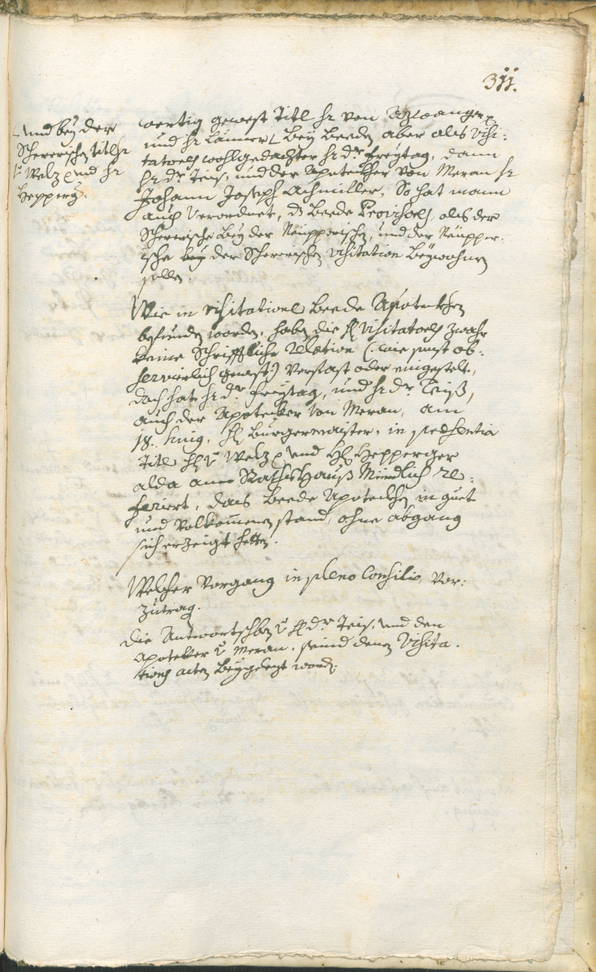 311.
und bey der
Schererischen titl hr
v: Welz, und hr
Hepperg.
wertig gewest Titl hr von
und hr Länner, Bey Beeden aber als Visi:
tatores wohlgedachter hr dr. Freytag, dann
hr dr. Teis, und der Apotekher von Meran hr
Johann Joseph Achmiller, So hat mann
auch Verordnet, ds Beede Provisores, als der
Schererische Bey der Näupperischen, und der Näupper:
ische bey der Schererischen Visitation Beywohnen
sollen.
Wie in visitatione Beede Apoteckhen
befunden worden, haben die H: Visitatores zwahr
keine Schrifftliche Relation (: wie sonst ob:
servierlich gemacht:) Verfast oder eingestelt,
doch hat hr dr. Freytag, und hr dr. Teiß,
auch der Apotecker von Meran, am
18. huig. H: Burgermaister, in presentia
Titl H: v: Welz, und H: Hepperger
alda am RathsHauß Mündlich re:
feriert, dass Beede Apoteckhen in gut
und Volkommenen stand, ohne abgang
sich erzeigt hetten.
Welcher Vorgang in pleno Consilio Vor:
zutrag.
die Antwortschreiben v: H: dr. Teis, und den
Apotekker v: Meran, seind denen Visita:
tions acten Beygelegt worden.